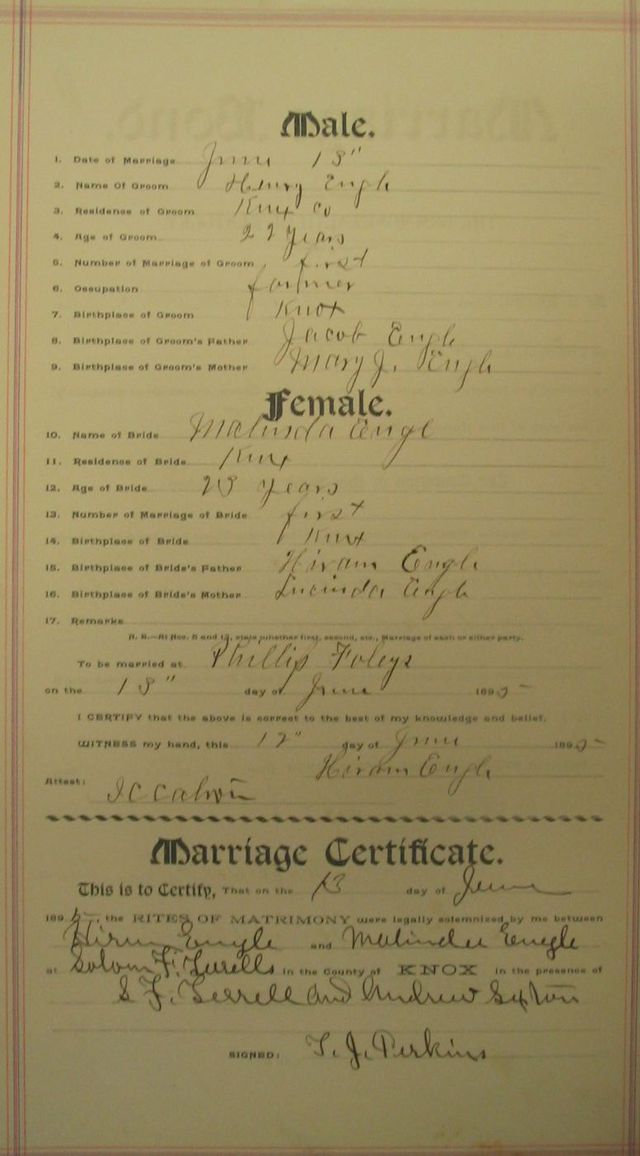 Male.
1. Date of Marriage June 13"
2. Name Of Groom Henry Engle
3. Residence of Groom Knox Co
4. Age of Groom 22 years
5. Number of Marriage of Groom first
6. Occupation farmer
7. Birthplace of Groom Knox
8. Birthplace of Groom's Father Jacob Engle
9. Birthplace of Groom's Mother Mary J. Engle
Female.
10. Name of Bride Malinda Engl
11. Residence of Bride Knox
12. Age of Bride 23 years
13. Number of Marriage of Bride first
14. Birthplace of Bride Knox
15. Birthplace of Bride's Father Hiram Engle
16. Birthplace of Bride's Mother Lucinda Engle
17. Remarks
N. B.—At Nos. 5 and 13, state whether first, second, etc., Marriage of each or either party.
To be married at Phillip Foleys
on the 13" day of June 1895
I CERTIFY that the above is correct to the best of my knowledge and belief.
WITNESS my hand, this 12" day of June 1895
Hiram Engle
Attest:
Marriage Certificate.
This is to Certify, That on the 13 day of June
1895, the RITES OF MATRIMONY were legally solemnized by me between
Hirm Engle and Malinda Engle
at F. in the County of KNOX in the presence of
S F. and Andrew Sexton
SIGNED: T. J. Perkins